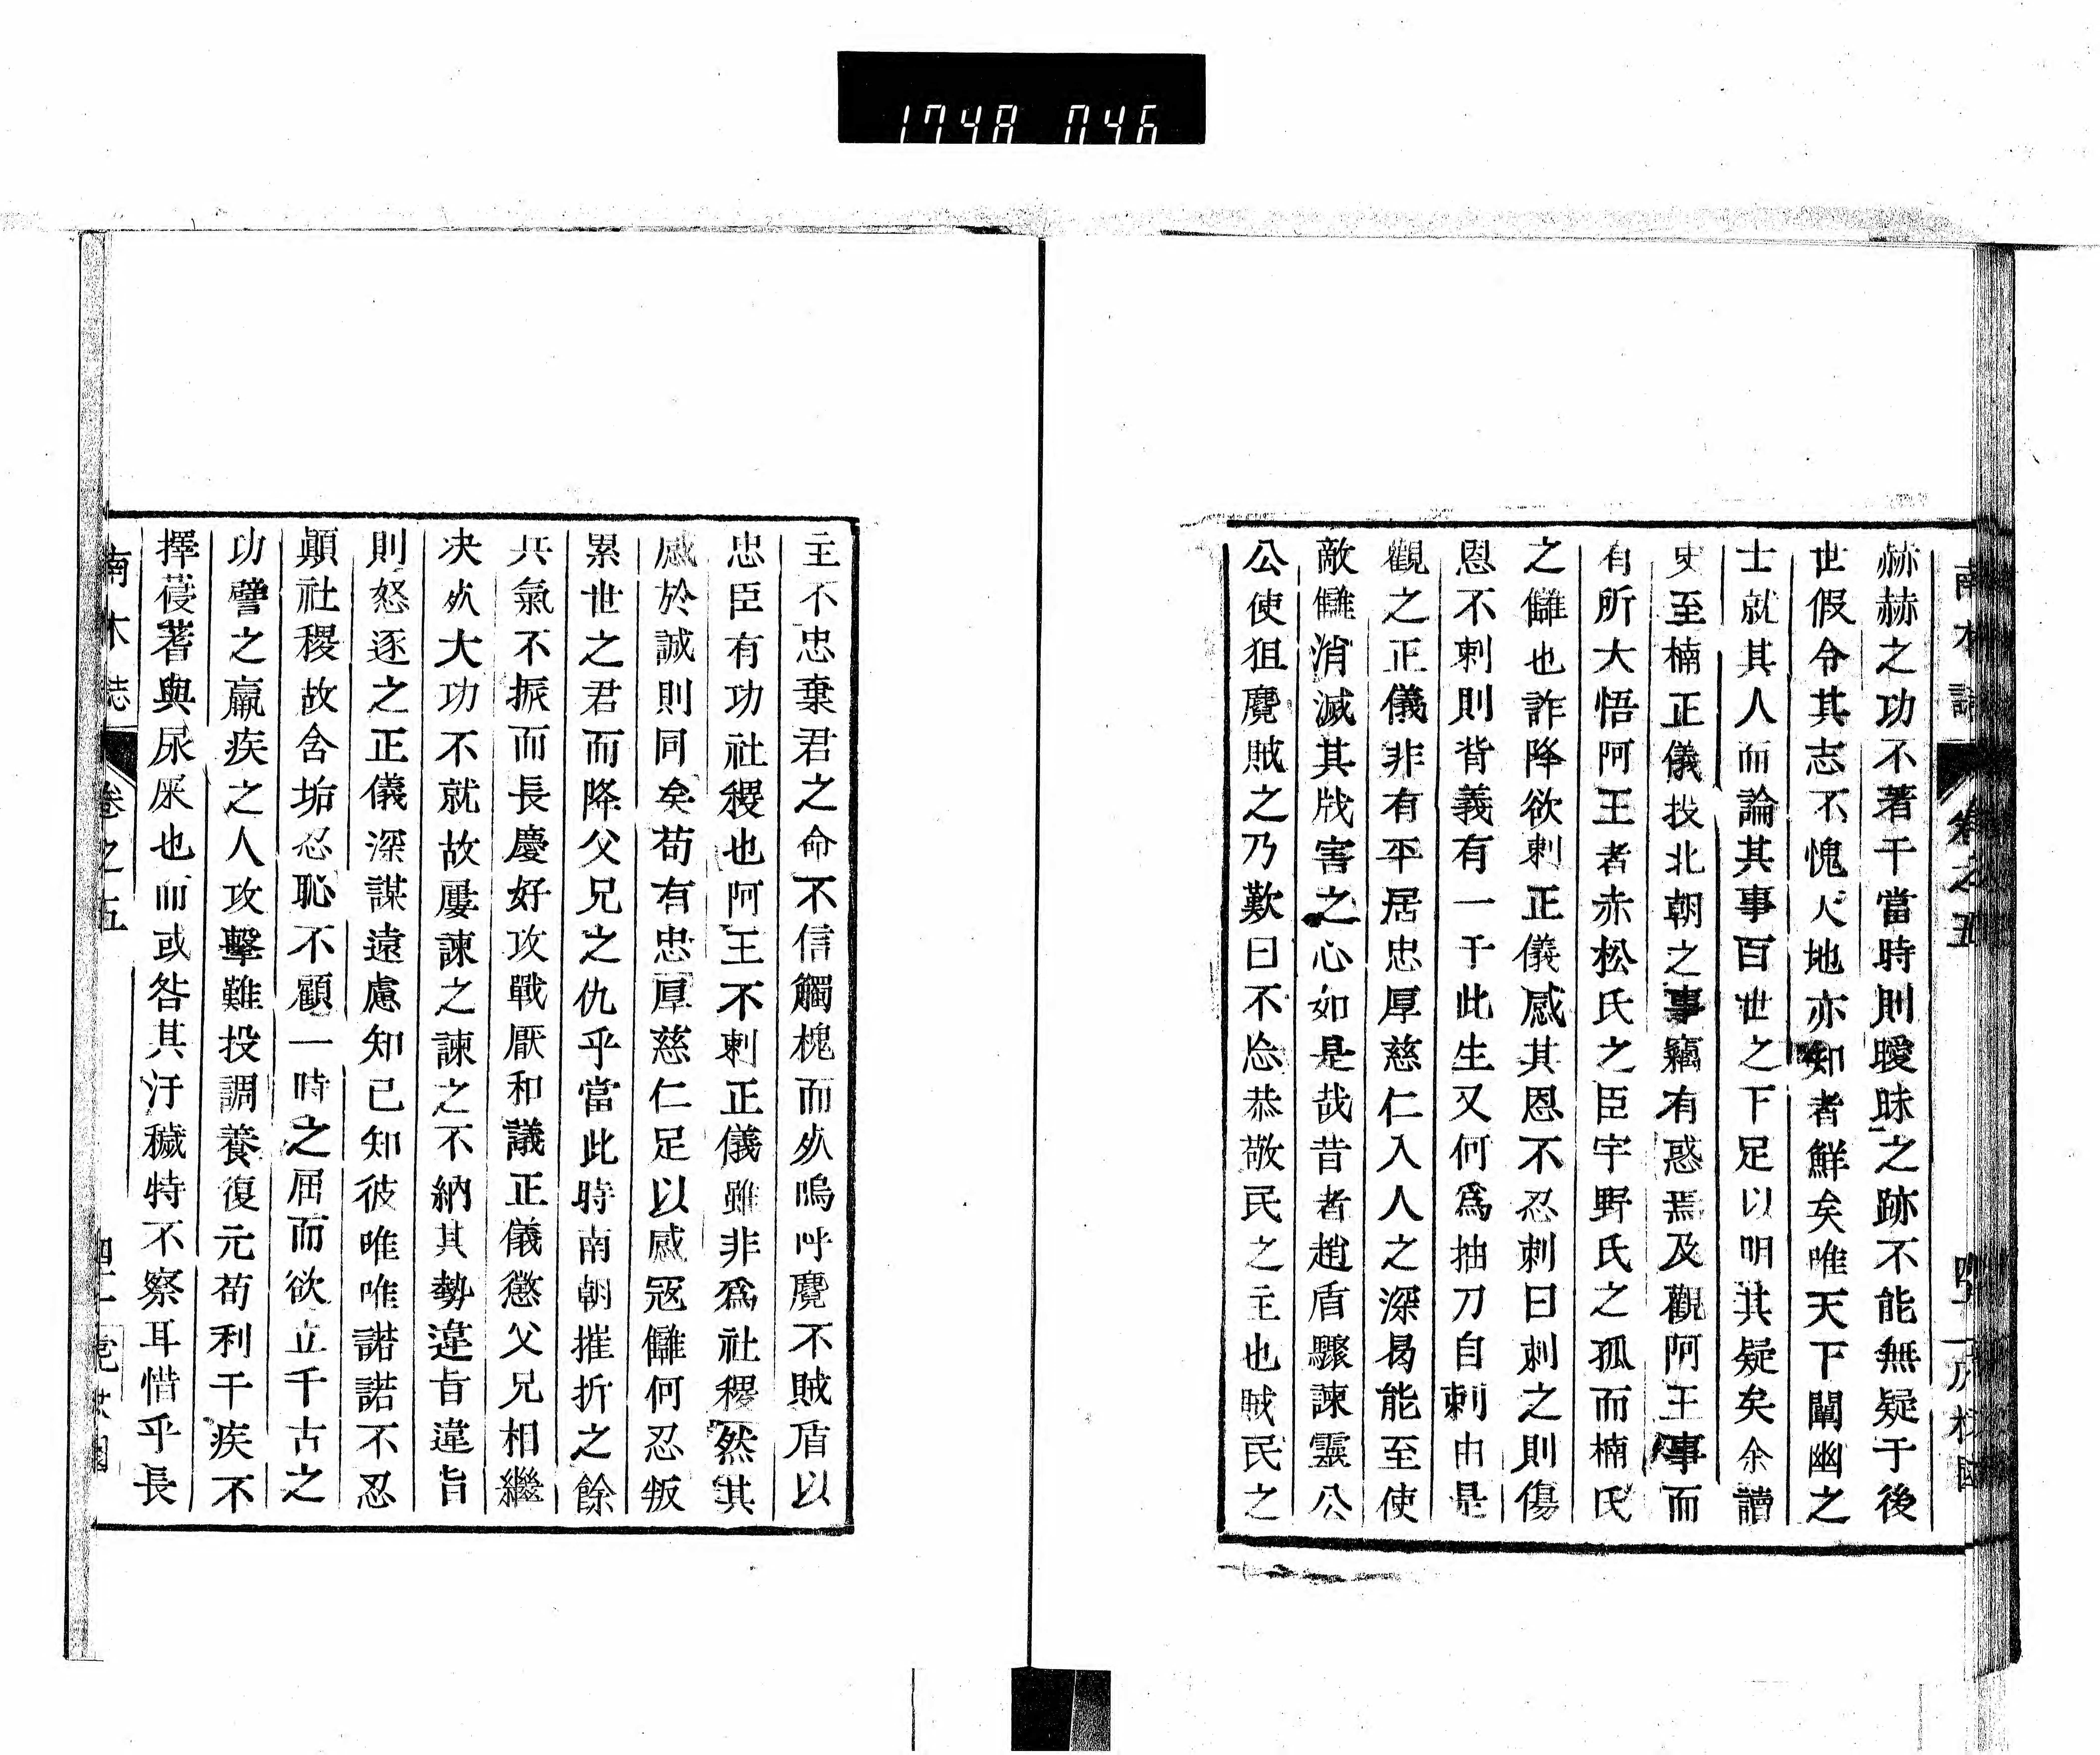 1748 046
南木誌
卷之五
赫赫之功不著于當時則曖昧之跡不能無疑于後
世假令其志不愧天地亦知者鮮矣唯天下闡幽之
士就其人而論其事百世之下足以明其疑矣余讀
史至楠正儀投北朝之事竊有惑焉及觀阿王事而
有所大悟阿王者赤松氏之臣宇野氏之孤而楠氏
之讎也詐降欲刺正儀感其恩不忍刺曰刺之則傷
恩不刺則背義有一于此生又何爲抽刀自刺由是
觀之正儀非有平居忠厚慈仁入人之深曷能至使
敵讎消滅其戕害之心如是哉昔者趙盾驟諫靈公
公使狙麑賊之乃歎曰不忘恭敬民之主也賊民之
主不忠棄君之命不信觸槐而死嗚呼麑不賊盾以
忠臣有功社稷也阿王不刺正儀雖非爲社稷然其
感於誠則同矣苟有忠厚慈仁足以感冦讎何忍叛
累世之君而降父兄之仇乎當此時南朝摧折之餘
兵氣不振而長慶好攻戰厭和議正儀懲父兄相繼
决死大功不就故屢諫之諫之不納其勢違旨違旨
則怒逐之正儀深謀遠慮知已知彼唯唯諾諾不忍
顛社稷故含垢忍恥不顧一時之屈而欲立千古之
功譬之羸疾之人攻擊難投調養復元苟利于疾不
擇葠蓍與尿屎也而或咎其汙穢特不察耳惜乎長
南木誌
卷之五